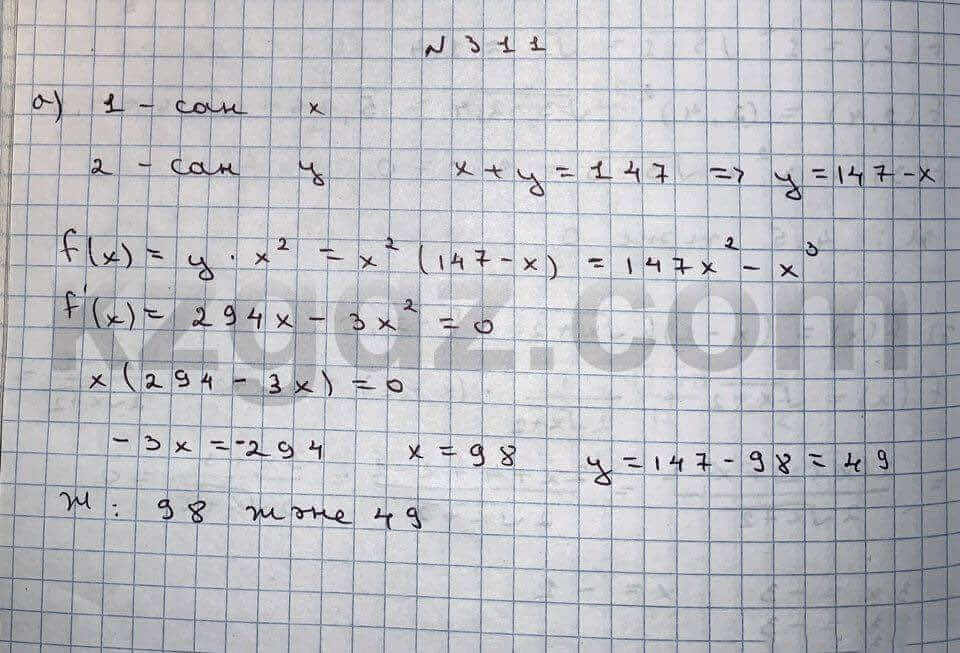 N 311
а) 1 - сан x
2 - сан y x + y = 147 => y = 147 - x
f(x) = y · x² = x² (147 - x) = 147x² - x³
f'(x) = 294x - 3x² = 0
kzgdz.com
x (294 - 3x) = 0
- 3x = -294 x = 98 y = 147 - 98 = 49
Ж: 98 және 49